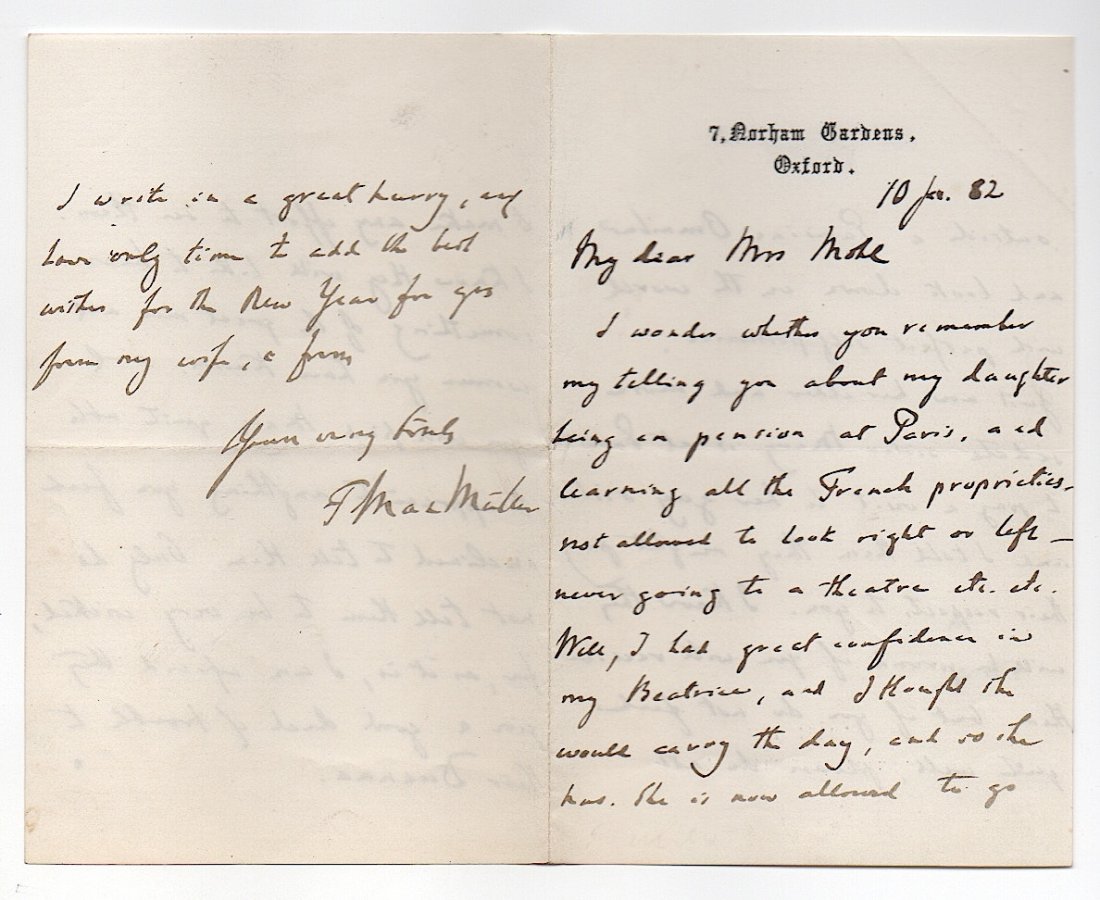 7, Norham Gardens,
Oxford.
10 Jan. 82
My dear Mrs Mohl
I wonder whether you remember
my telling you about my daughter
being en pension at Paris, and
learning all the French proprieties,
not allowed to look right or left —
never going to a theatre etc. etc.
Well, I had great confidence in
my Beatrice, and I thought she
would carry the day, and so she
has. She is now allowed to go
I write in a great hurry, and
have only time to add the best
wishes for the New Year for you
from my wife, & from
Yours very truly
F Max Müller